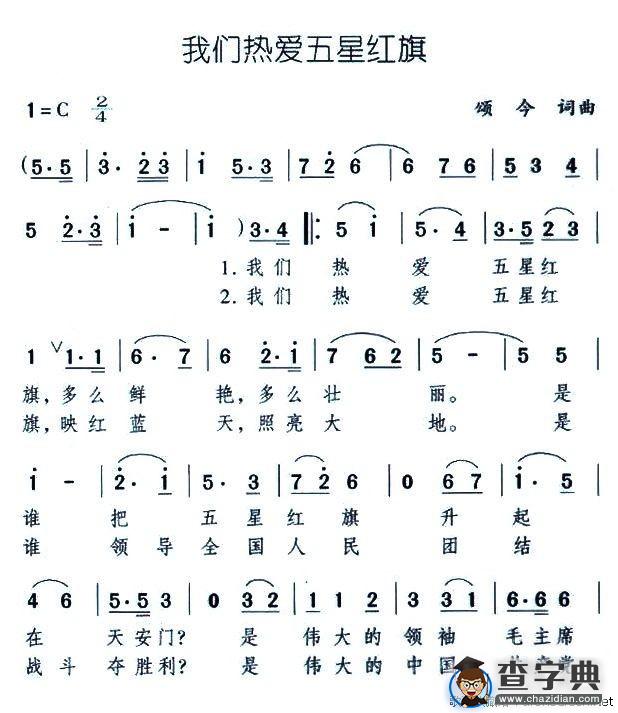 我们热爱五星红旗
1=C 2/4 颂今 词曲
(5·5 | 3· 23 | i 5·3 | 7 2 6 | 6 7 6 | 5 3 4 |
5 2·3 | i - | i ) 3·4 |: 5 i | 5· 4 | 3·5 2 3 |
1.我们 热 爱 五星红
2.我们 热 爱 五星红
1 ∨ 1·1 | 6· 7 | 6 2·i | 7 6 2 | 5 - | 5 5 |
旗,多么 鲜 艳,多么 壮 丽。 是
旗,映红 蓝 天,照亮 大 地。 是
i - | 2· i | 5· 3 | 7 2 7 6 | 0 6 7 | i· 5 |
谁 把 五星红旗 升起
谁 领导全国人民 团结
4 6 | 5·5 3 | 0 3 2 | 1 1 2 | 3 1 2 | 6·6 6 |
在 天安门? 是 伟大的领袖 毛主席
战斗 夺胜利? 是 伟大的中国
查字典
www.chazidian.com